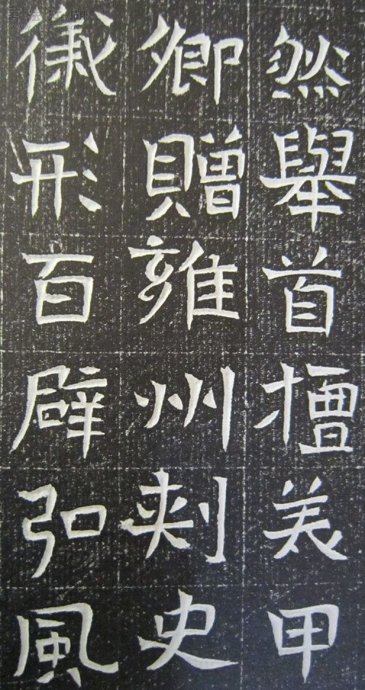 然舉首擅美甲
卿贈雍州刾史
儀形百辟弘風